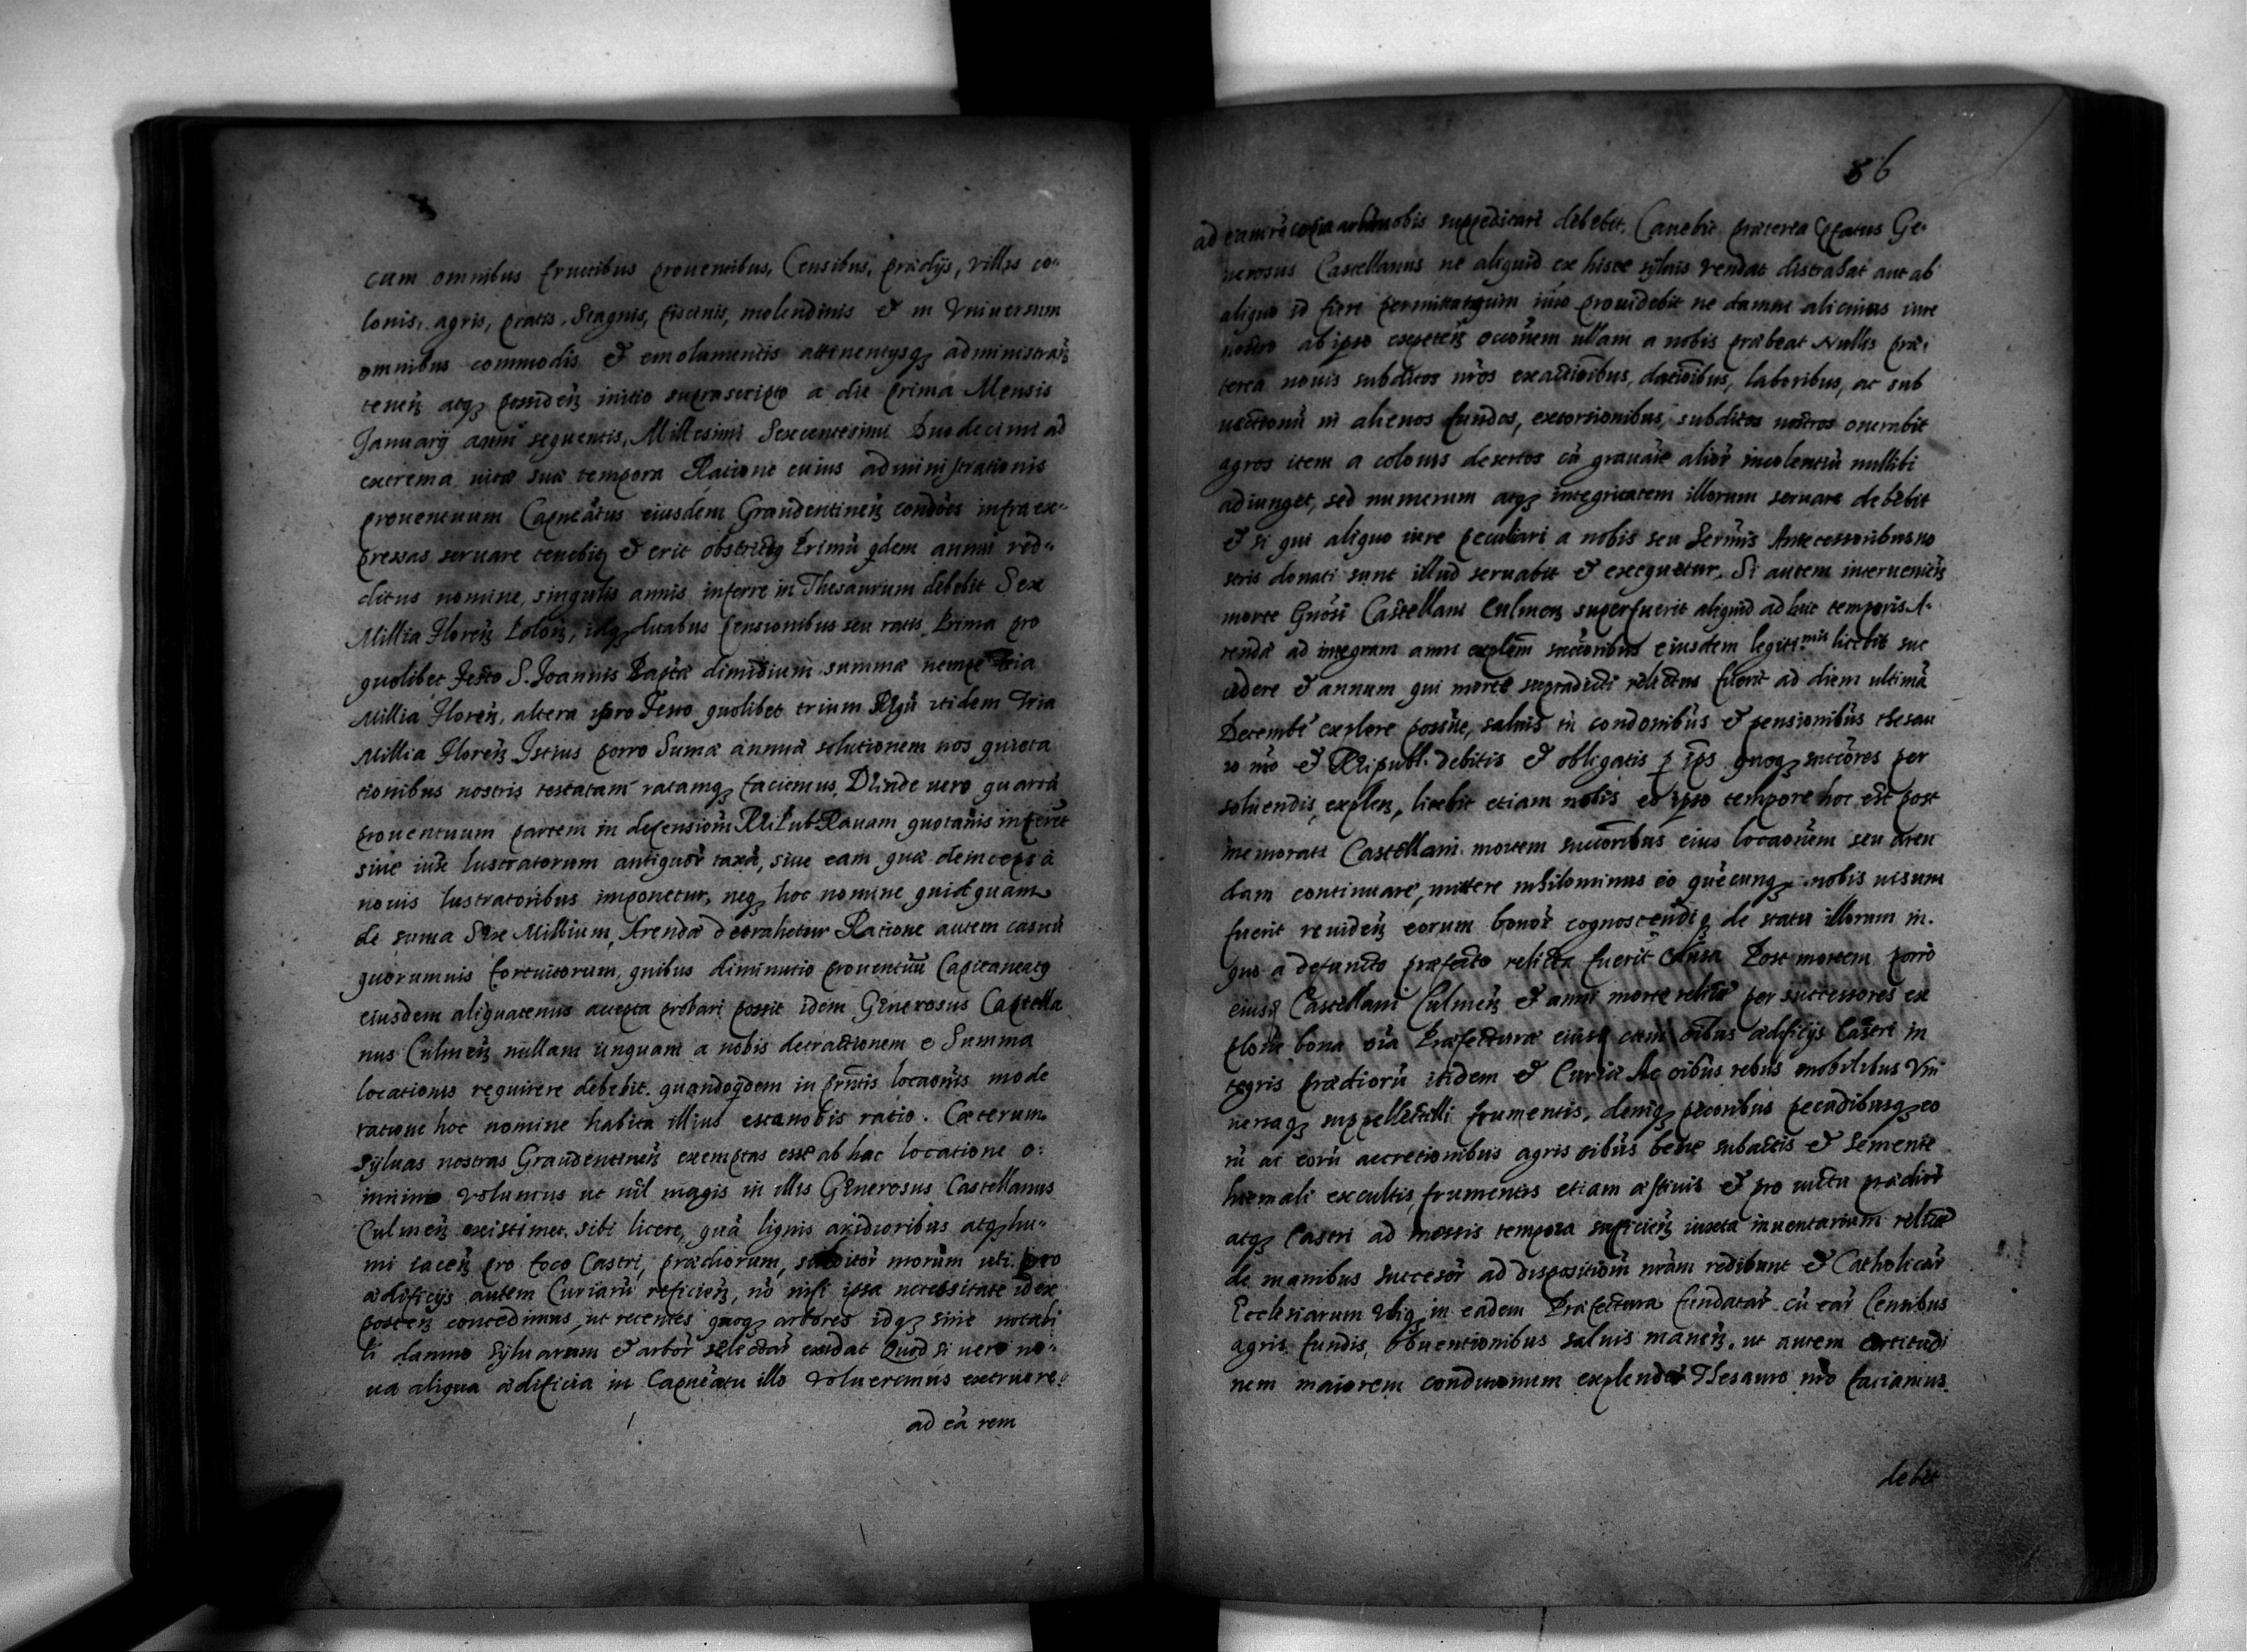 cum omnibus fructibus prouentibus, Censibus, prædijs, villis co-
lonis, agris, pratis, Stagnis, piscinis, molendinis et in Vniuersum
omnibus commodis et emolumentis attinentijsq; administran̄
tenen̄ atq; possiden̄ initio suprascripto a die prima Mensis
Januarij anni sequentis, Millesimi Sexcentesimi Duodecimi ad
extrema vitæ suæ tempora Ratione cuius administrationis
prouentuum Capneātus eiusdem Graudentinen̄ condōes infra ex-
pressas seruare tenebit et erit obstrictq Primū qdem annui red-
ditus nomine, singulis annis inferre in Thesaurum debebit Sex
Millia Floren̄ Polon̄, idq; duabus pensionibus seu ratis. Prima pro
quolibet Festo S. Joannis Baptæ dimidium summæ nempe tria
Millia Floren̄, altera pro Festo quolibet trium Rgū itidem tria
Millia Floren̄ Istius porro Sumæ annuæ solutionem nos quieta
tionibus nostris testatam ratamq; faciemus, Deinde vero quartā
prouentuum partem in defensiōm Rei Pub Rauam quotānis inferet
siue iuxe lustratorum antiquor̄ taxā, siue eam quæ deinceps à
nouis lustratoribus imponetur, neq; hoc nomine quidquam
de suma Sex Millium, Arendæ detrahetur Ratione autem casuū
quorumuis fortuitorum, quibus diminutio prouentuū Capitaneatq
eiusdem aliquatenus accepta probari possit idem Generosus Castella
nus Culmen̄ nullam unquam a nobis detractionem e Summa
locationis requirere debebit. quandoqdem in prn̄tis locaōnis mode
ratione hoc nomine habita illius est a nobis ratio. Cæterum
syluas nostras Graudentinen̄ exemptas esse ab hac locatione o:
mnino volumus ut nil magis in illis Generosus Castellanus
Culmen̄ existimet, sibi licere, quā lignis aridioribus atq; hu-
mi iacen̄ pro foco Castri, prædiorum, subditor̄ morum uti. pro
ædificijs autem Curiarū reficien̄, nō nisi ipsa necessitate id ex
poscen̄ concedimus, ut recentes quoq; arbores idq; sine notabi
li damno syluarum et arbor̄ selectar̄ exidat Quod si uero no-
ua aliqua ædificia in Capneātu illo volueremus extruere,
ad eā rem
86
ad eam rē copia arborū nobis suppeditari debebit, Cauebit præterea Præfatus Ge-
nerosus Castellanus ne aliquid ex hisce syluis vendat distrahat aut ab
aliquo id fieri permittat quin imo prouidebit ne damni alicuius iure
nostro ab ipso expeten̄ occōnem ullam a nobis præbeat Nullis præ-
terea nouis subditos nr̄os exactiōibus, datiōibus, laboribus, ac sub
uectionū in alienos fundos, extorsionibus, subditos nostros onerabit
agros item a colonis desertos cū grauāie alior̄ incolentiū nullibi
adiunget, sed numerum atq; integritatem illorum seruare debebit
et si qui aliquo iure peculiari a nobis seu Serm̄is Antecessoribus no
stris donati sunt illud seruabit et exequetur, Si autem interuenien̄
morte Gnōsi Castellani Culmen̄ superfuerit aliquid ad huc temporis A-
rendæ ad integram anni explōem succōribus eiusdem legitimis licebit suc
cedere et annum qui morte supradicti relictus fuerit ad diem ultimā
Decembr̄ explere possine, saluis in condonibus et pensionibus thesau
ro nr̄o et Reipubl. debitis et obligatis p ip̄s quoq; succōres per
soluendis, explen̄, licebit etiam nobis eo ipso tempore hoc est post
memorati Castellani mortem succoribus eius locaōnem seu aren
dam continuare, mittere nihilominus eo quēcunq; nobis uisum
fuerit reuiden̄ eorum bonor̄ cognoscendiq de statu illorum in.
quo a defuncto præfecto relicta fuerit Post mortem porrò
eiusq Castellani Culmen̄ et anni morte relictæ per successores ex
plone bona oīa Præfecturæ eiusq cum oībus ædificijs Castri in
tegris prædiorū itidem et Curiæ Ac oībus rebus mobilibus Vni
uersaq; suppellectili frumentis, deniq; pecoribus pecudibusq; eo
rū ac eorū accretionibus agris oībus bene subactis et Semente
hiemali excultis, frumentis etiam æstiuis et pro victu prædior̄
atq; Castri ad messis tempora suficien̄ iuxta inuentarium relictæ
de manibus succesor̄ ad dispositiōm nrām redibunt et Catholicar̄
Ecclesiarum ubiq; in eadem Præfectura fundatar̄ cū ear̄ Censibus
agris fundis, obuentionibus saluis manen̄, ut autem certitudi
nem maiorem condicionum explendar̄ Thesauro nr̄o faciamus
debet